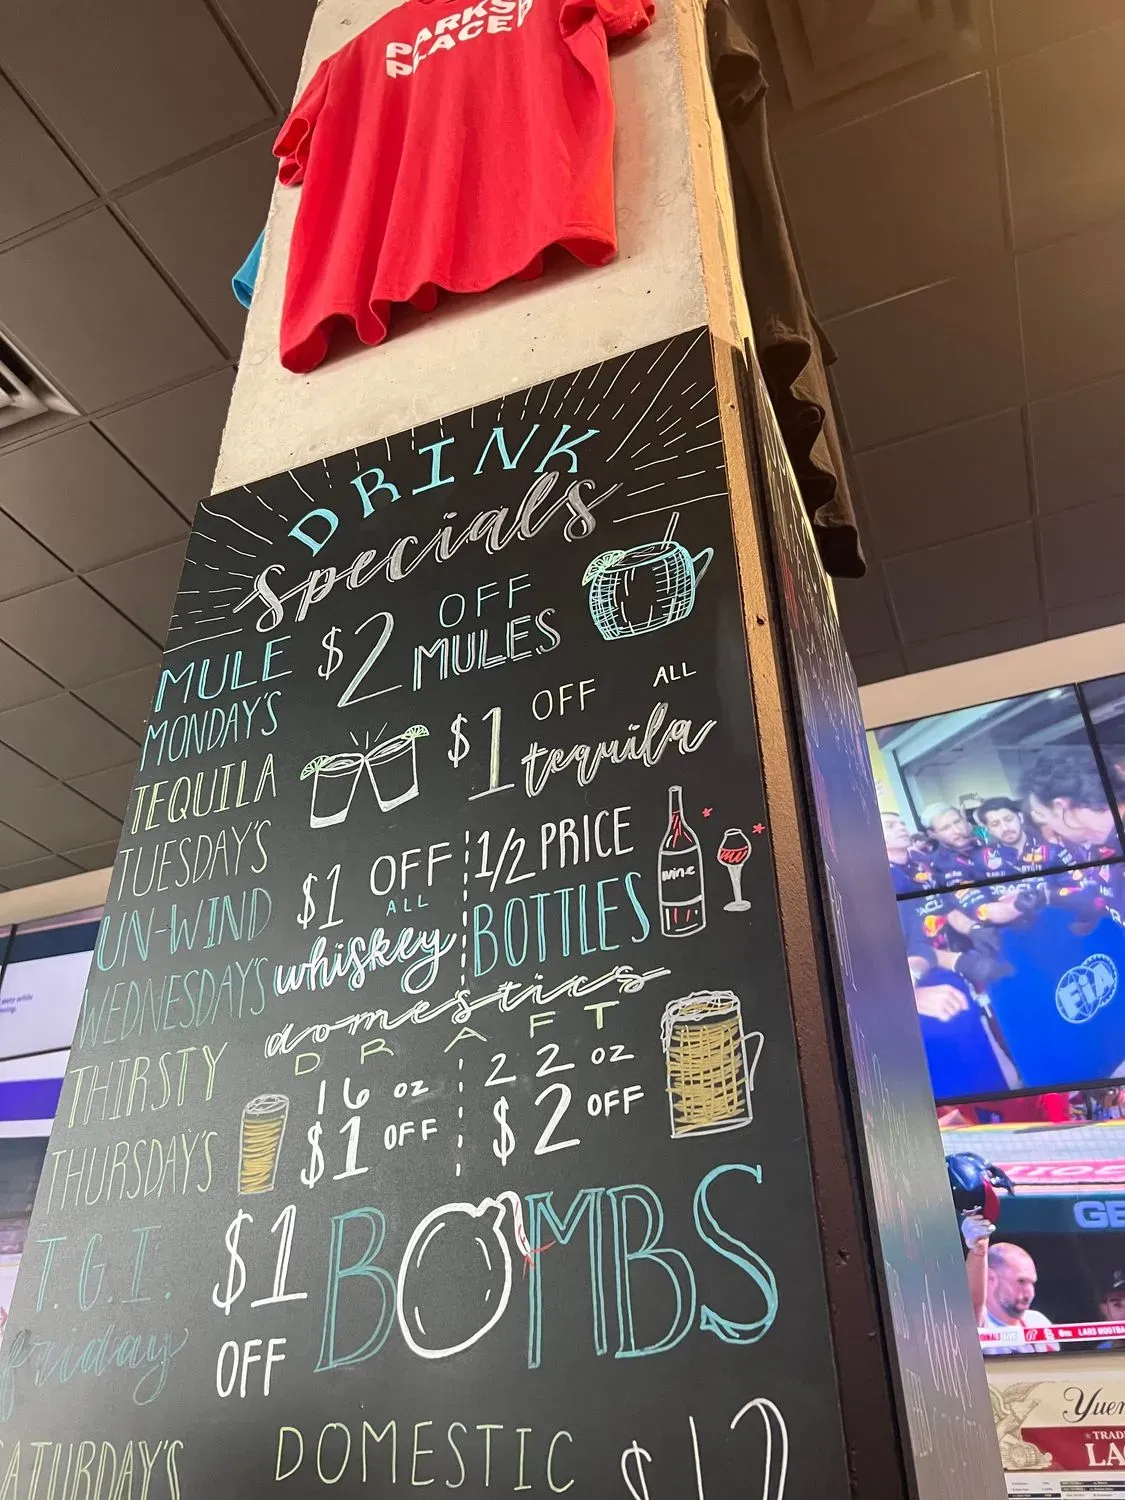 PARKS
PLACE
DRINK
Specials
MULE
MONDAY'S
$2 OFF
MULES
TEQUILA
TUESDAY'S
$1 OFF ALL
tequila
UN-WIND
WEDNESDAY'S
$1 OFF
ALL
whiskey
1/2 PRICE
BOTTLES
wine
THIRSTY
THURSDAY'S
domestics
DRAFT
16 oz
$1 OFF
22 oz
$2 OFF
T.G.I.
friday
$1
OFF
BOMBS
SATURDAY'S
DOMESTIC
ORACLE
FIA
GE
LARS NOOTBA
Yuen
TRAD
LA